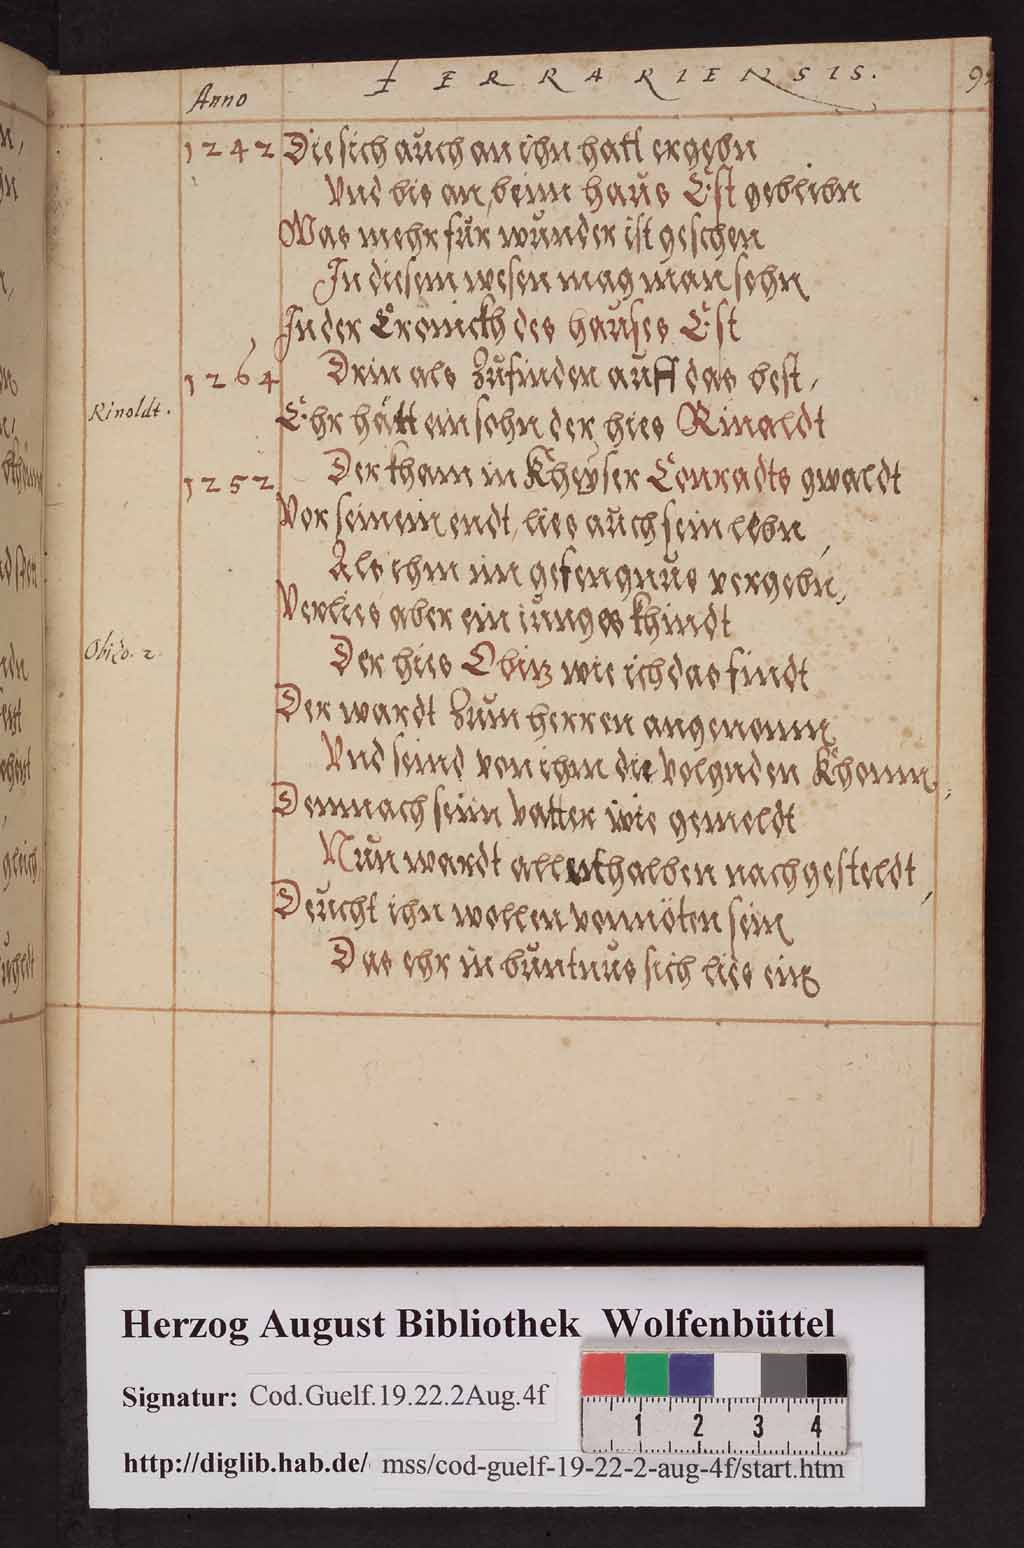 FERRARIENSIS.
Anno
1242 Die sich auch an ihn hatt ergebn
Vnd bis an, beim haus Est geblibn
Was mehr fur wunder ist geschen
In diesem wesen mag man sehn
In der Cronickh des hauses Est
1264 Drin als Zufinden auff das best,
Rinoldt. Ehr hätt ein sohn der hies Rinaldt
1252 Der kham in Kheyser Conradts gwaldt
Vor seinem endt, lies auch sein lebn,
Als ihm im gefengnus vergebn,
Verlies aber ein iunges khindt
Obizo. 2. Der hies Obitz wie ich das findt
Der wardt Zum herren angenomn
Vnd seind von ihm die Volgnden Khomn,
Demnach seim vatter wie gemeldt
Nun wardt allenthalben nachgesteldt,
Deucht ihn wollen vonnöten sein
Das ehr in buntnus sich lies ein
Herzog August Bibliothek Wolfenbüttel
Signatur: Cod.Guelf.19.22.2Aug.4f
1 2 3 4
http://diglib.hab.de/ mss/cod-guelf-19-22-2-aug-4f/start.htm